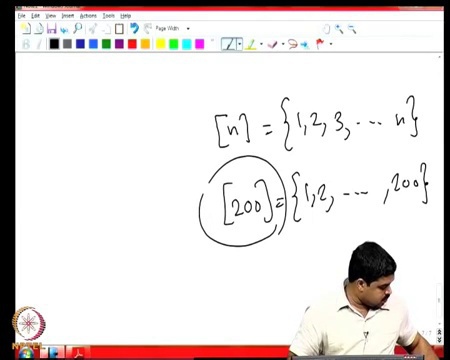 File Edit View Insert Actions Tools Help
Page Width
[n] = {1, 2, 3, ... n}
[200] = {1, 2, ... , 200}